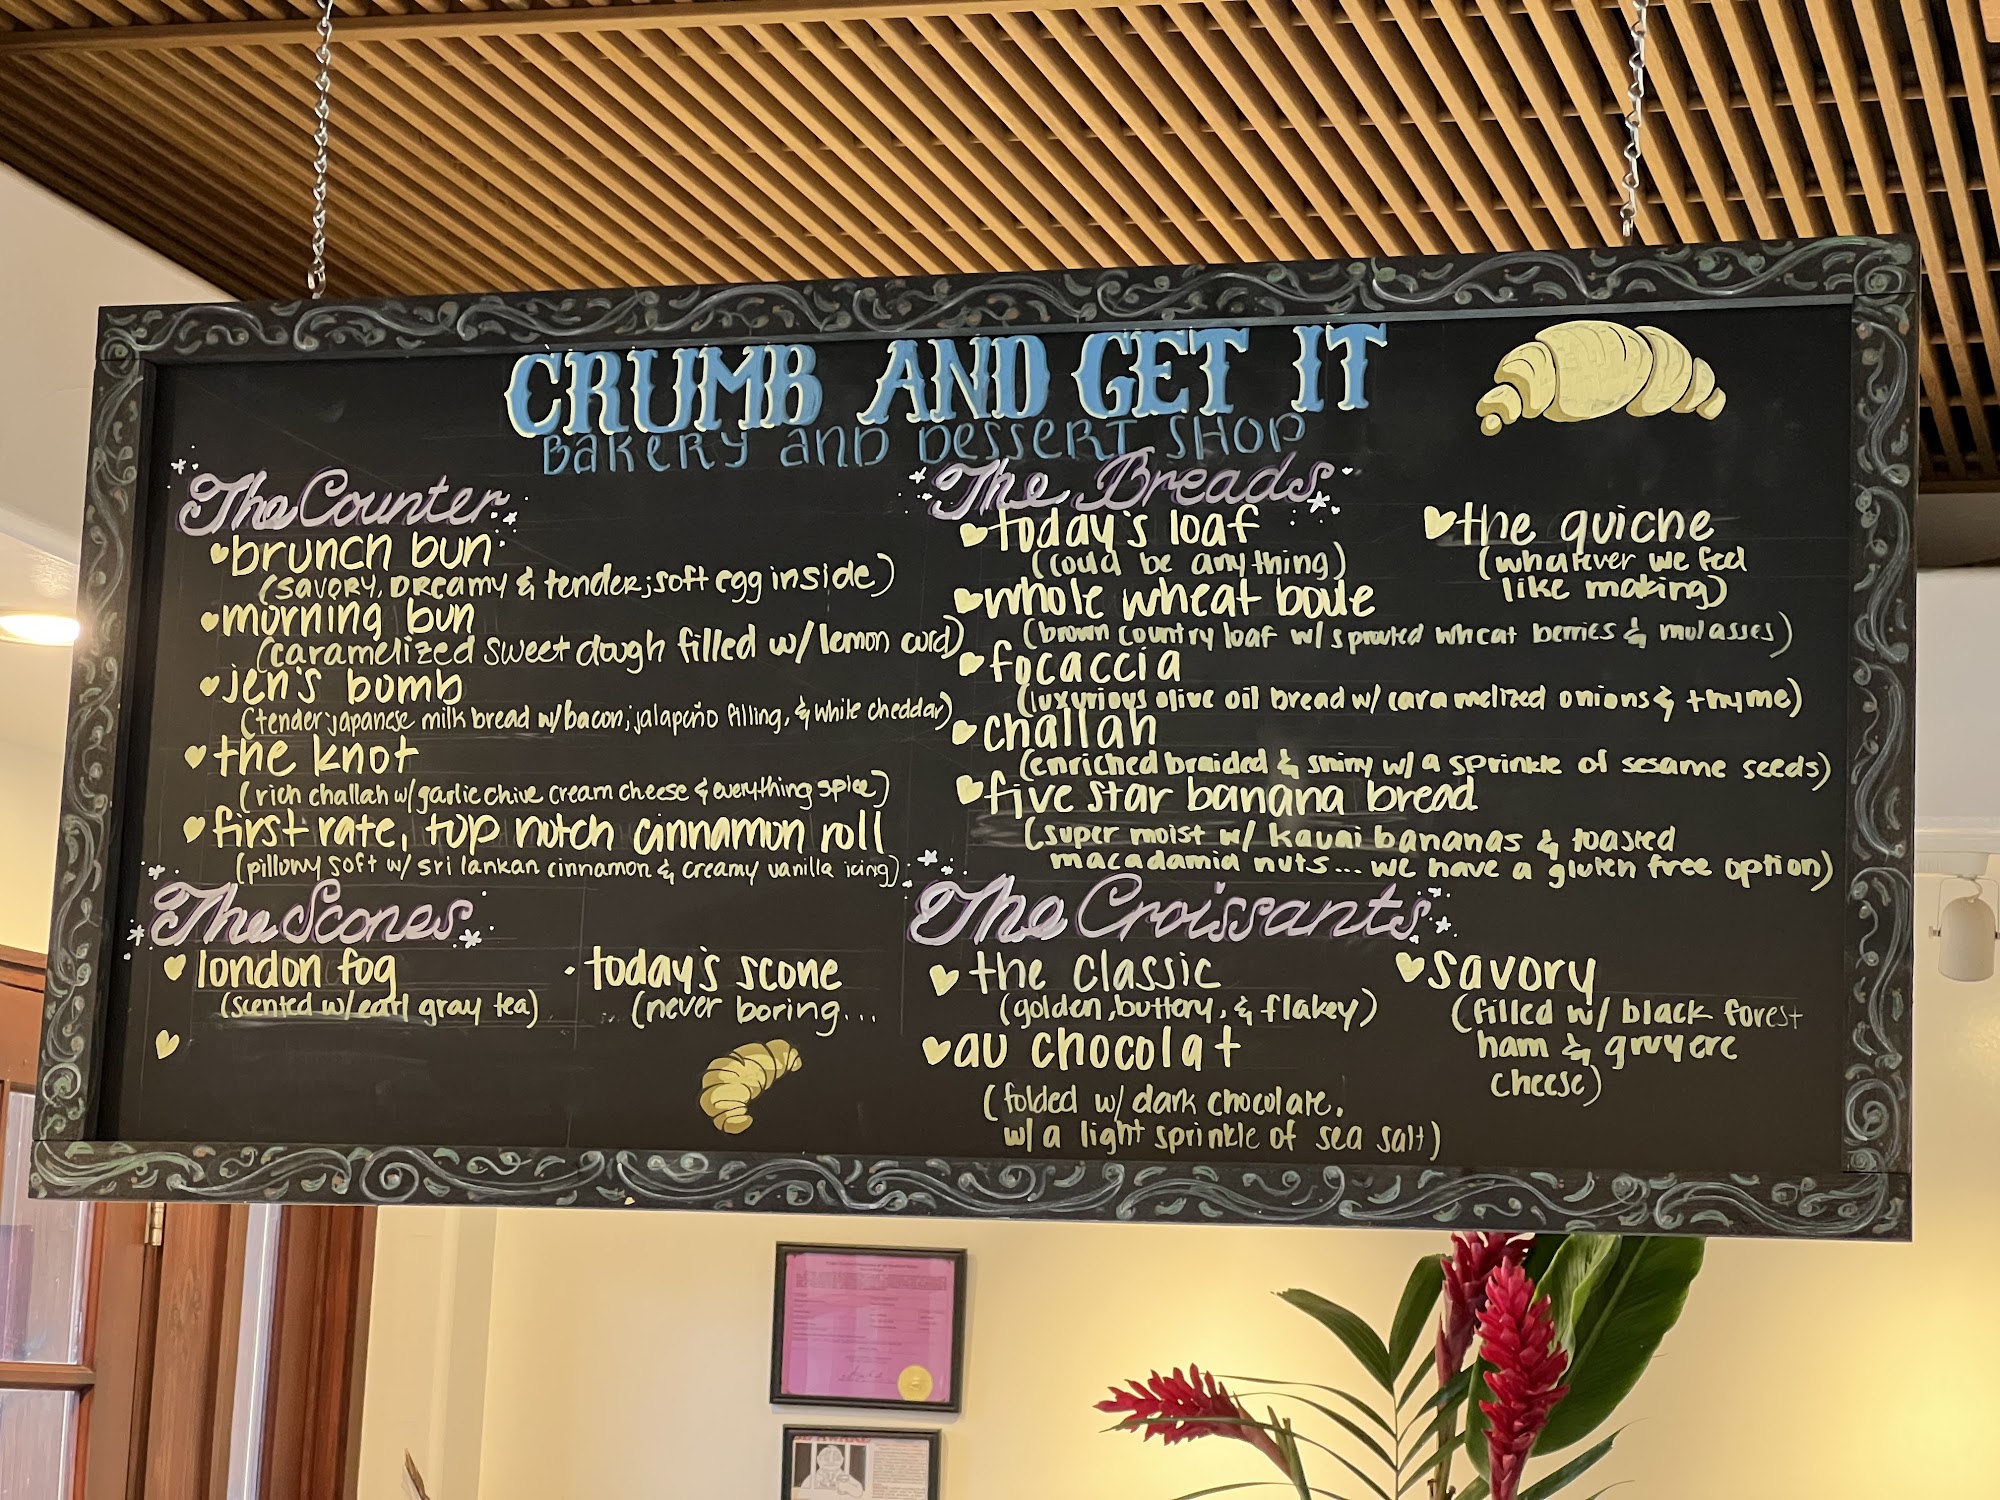 CRUMB AND GET IT
BAKERY AND DESSERT SHOP
The Counter
brunch bun
(SAVORY, DREAMY & tender; soft egg inside)
morning bun
(caramelized sweet dough filled w/ lemon curd)
jen's bomb
(tender japanese milk bread w/ bacon, jalapeño filling, & white cheddar)
the knot
(rich challah w/ garlic chive cream cheese & everything spice)
first rate, top notch cinnamon roll
(pillowy soft w/ sri lankan cinnamon & creamy vanilla icing)
The Scones
london fog
(scented w/ earl gray tea)
today's scone
(never boring...
The Breads
today's loaf
(could be anything)
the quiche
(whatever we feel
like making)
whole wheat boule
(brown country loaf w/ sprouted wheat berries & molasses)
focaccia
(luxurious olive oil bread w/ caramelized onions & thyme)
challah
(enriched braided & shiny w/ a sprinkle of sesame seeds)
five star banana bread
(super moist w/ kauai bananas & toasted
macadamia nuts... we have a gluten free option)
The Croissants
the classic
(golden, buttery, & flakey)
au chocolat
(folded w/ dark chocolate,
w/ a light sprinkle of sea salt)
savory
(filled w/ black forest
ham & gruyere
cheese)